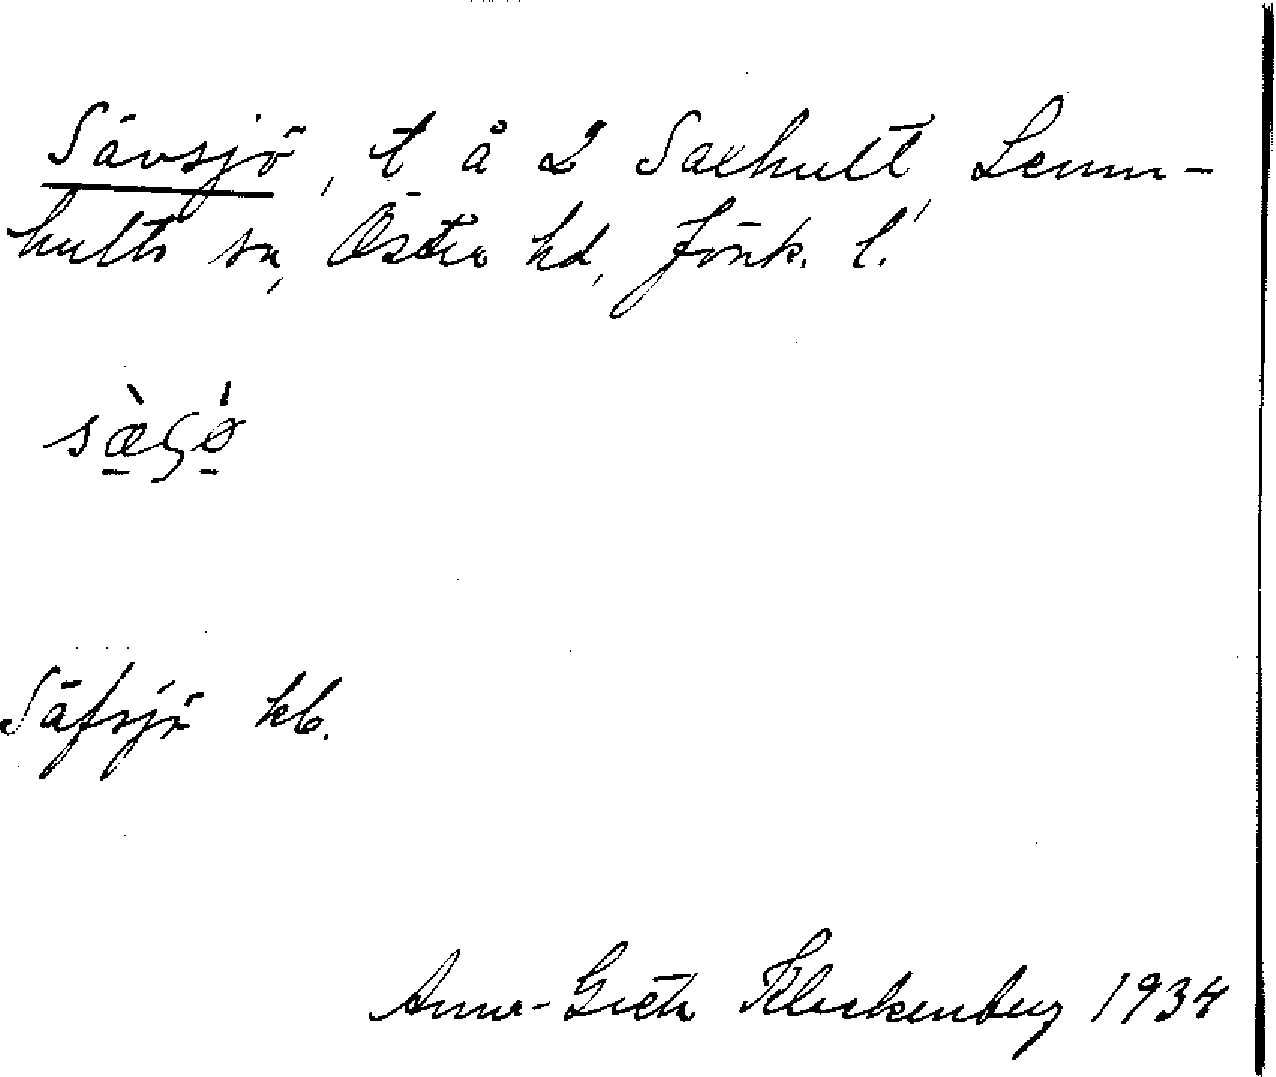 Sävsjö, t å 2 Saxhult, Lemn-
hults sn, Östra hd, Jönk. l.
Säfsjö kb.
Anna-Greta Klockenberg 1934